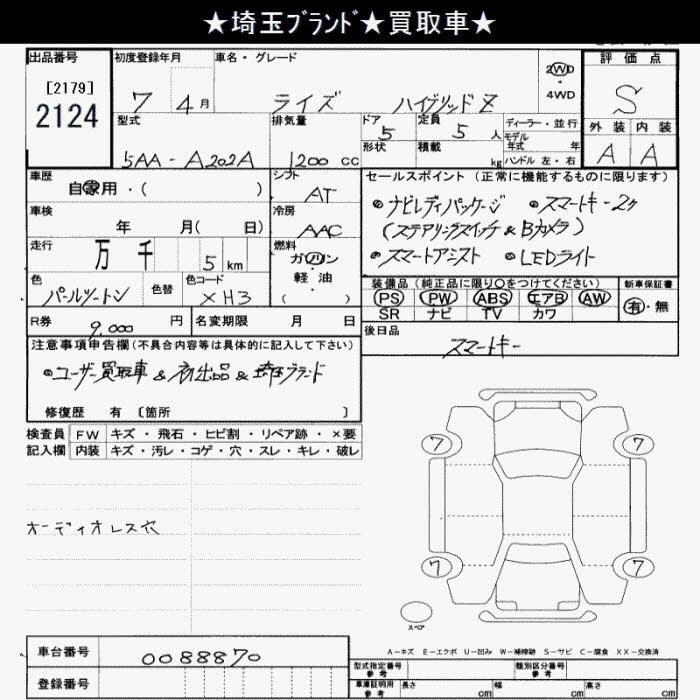 ★埼玉ﾌﾞﾗﾝﾄﾞ★買取車★
出品番号
[2179]
2124
初度登録年月
7 4 月
車名・グレード
ライズ ハイブリッド Z
2WD
4WD
評価点
S
外装 内装
A A
型式
5AA-A202A
排気量
1200 CC
ドア
5
形状
定員
5 人
積載
kg
ディーラー・並行
モデル
年式 年
ハンドル 左・右
車歴
自家用・( )
シフト
AT
車検
年 月( 日)
冷房
AAC
走行
万 千 5 km
燃料
ガソリン
軽油
( )
色
パールツートン
色替
色コード
XH3
R券
9,000 円
名変期限 月 日
セールスポイント(正常に機能するものに限ります)
●ナビレディパッケージ ●スマートキー2ケ
(ステアリングスイッチ&Bカメラ)
●スマートアシスト ●LEDライト
装備品(純正品に限り○をつけてください)
PS PW ABS エアB AW
SR ナビ TV カワ
新車保証書
有・無
後日品
スマートキー
注意事項申告欄(不具合内容等は具体的に記入して下さい)
●ユーザー買取車&初出品&埼玉ブランド
修復歴 有 〔箇所 〕
検査員
記入欄
FW キズ・飛石・ヒビ割・リペア跡・×要
内装 キズ・汚レ・コゲ・穴・スレ・キレ・破レ
オーディオレス穴
7 7
7 7
スペア
A−キズ E−エクボ U−凹み W−補修跡 S−サビ C−腐食 XX−交換済
車台番号
0088870
登録番号
型式指定番号
参考
類別区分番号
参考
車庫証明用
参考
長さ cm 幅 cm 高さ cm